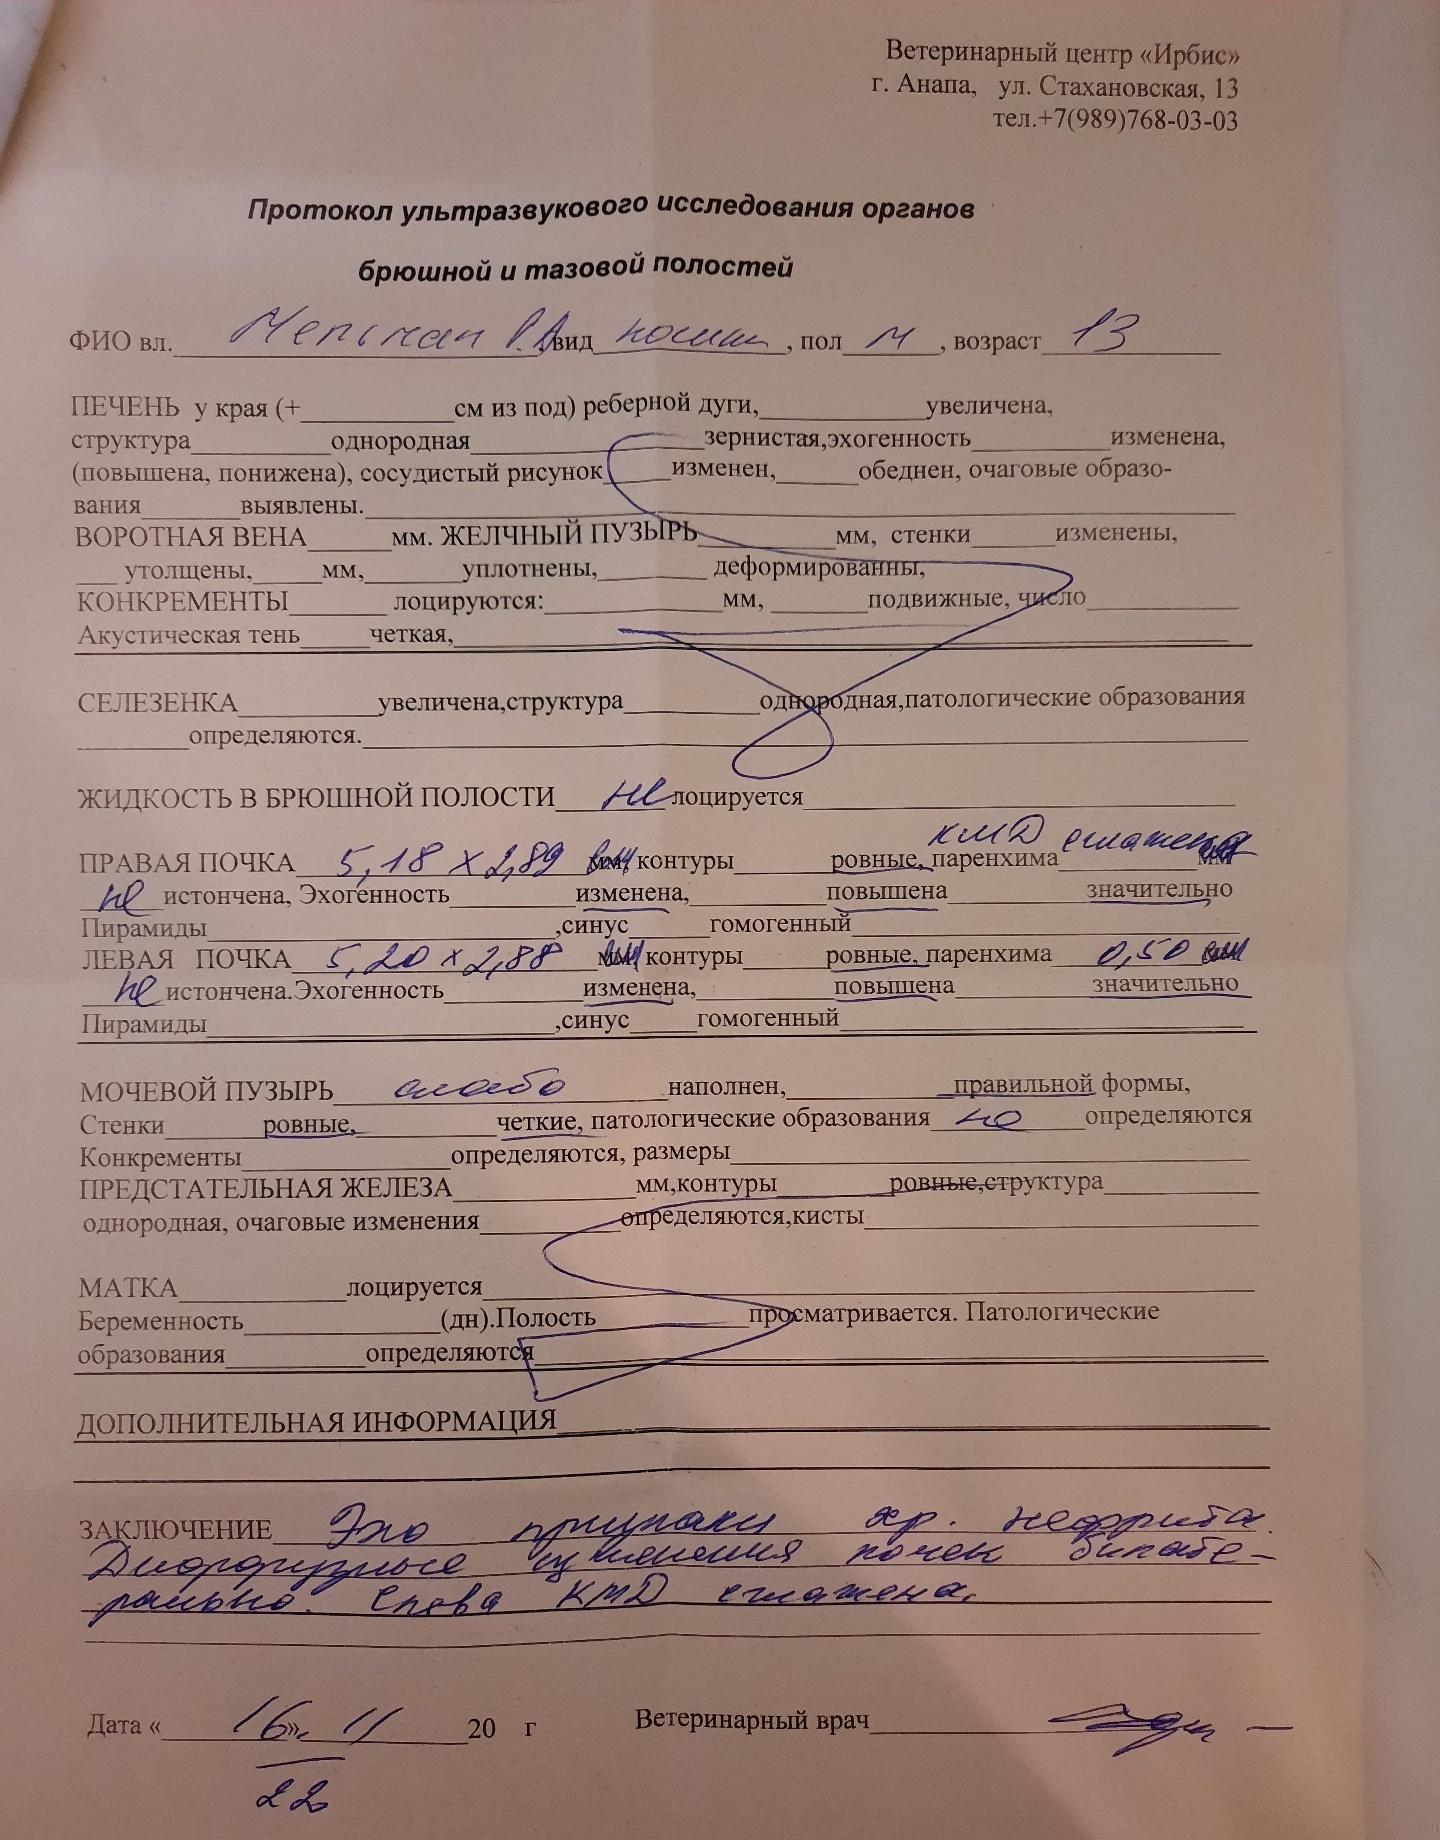 Ветеринарный центр «Ирбис»
г. Анапа, ул. Стахановская, 13
тел.+7(989)768-03-03
Протокол ультразвукового исследования органов
брюшной и тазовой полостей
ФИО вл. Р.А, вид кошки, пол м, возраст 13
ПЕЧЕНЬ у края (+___см из под) реберной дуги,___увеличена,
структура___однородная___зернистая,эхогенность___изменена,
(повышена, понижена), сосудистый рисунок___изменен,___обеднен, очаговые образо-
вания___выявлены.
ВОРОТНАЯ ВЕНА___мм. ЖЕЛЧНЫЙ ПУЗЫРЬ___мм, стенки___изменены,
___утолщены,___мм,___уплотнены,___деформированны,
КОНКРЕМЕНТЫ___лоцируются:___мм,___подвижные, число___
Акустическая тень___четкая,___
СЕЛЕЗЕНКА___увеличена,структура___однородная,патологические образования
___определяются.___
ЖИДКОСТЬ В БРЮШНОЙ ПОЛОСТИ не лоцируется
КМД сглажена
ПРАВАЯ ПОЧКА 5,18 x 2,89 см, контуры___ровные, паренхима___мм
не истончена, Эхогенность___изменена,___повышена___значительно
Пирамиды___,синус___гомогенный___
ЛЕВАЯ ПОЧКА 5,20 x 2,88 см, контуры___ровные, паренхима 0,50 см
не истончена.Эхогенность___изменена,___повышена___значительно
Пирамиды___,синус___гомогенный___
МОЧЕВОЙ ПУЗЫРЬ слабо наполнен,___правильной формы,
Стенки___ровные,___четкие, патологические образования не определяются
Конкременты___определяются, размеры___
ПРЕДСТАТЕЛЬНАЯ ЖЕЛЕЗА___мм,контуры___ровные,структура___
однородная, очаговые изменения___определяются,кисты___
МАТКА___лоцируется___
Беременность___(дн).Полость___просматривается. Патологические
образования___определяются___
ДОПОЛНИТЕЛЬНАЯ ИНФОРМАЦИЯ
ЗАКЛЮЧЕНИЕ Эхо признаки хр. нефрита.
Диффузные изменения почек билате-
рально. Справа КМД сглажена.
Дата «16» 11 20 г Ветеринарный врач
22